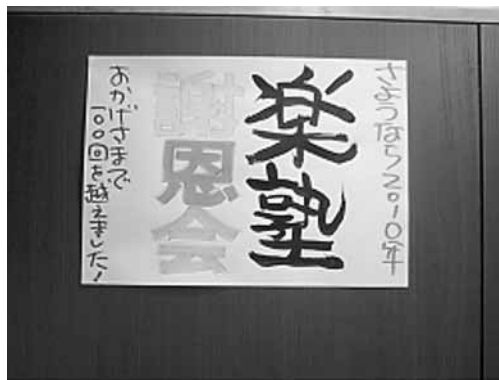 さようなら2010年
楽塾
謝恩会
おかげさまで
100回を越えました!